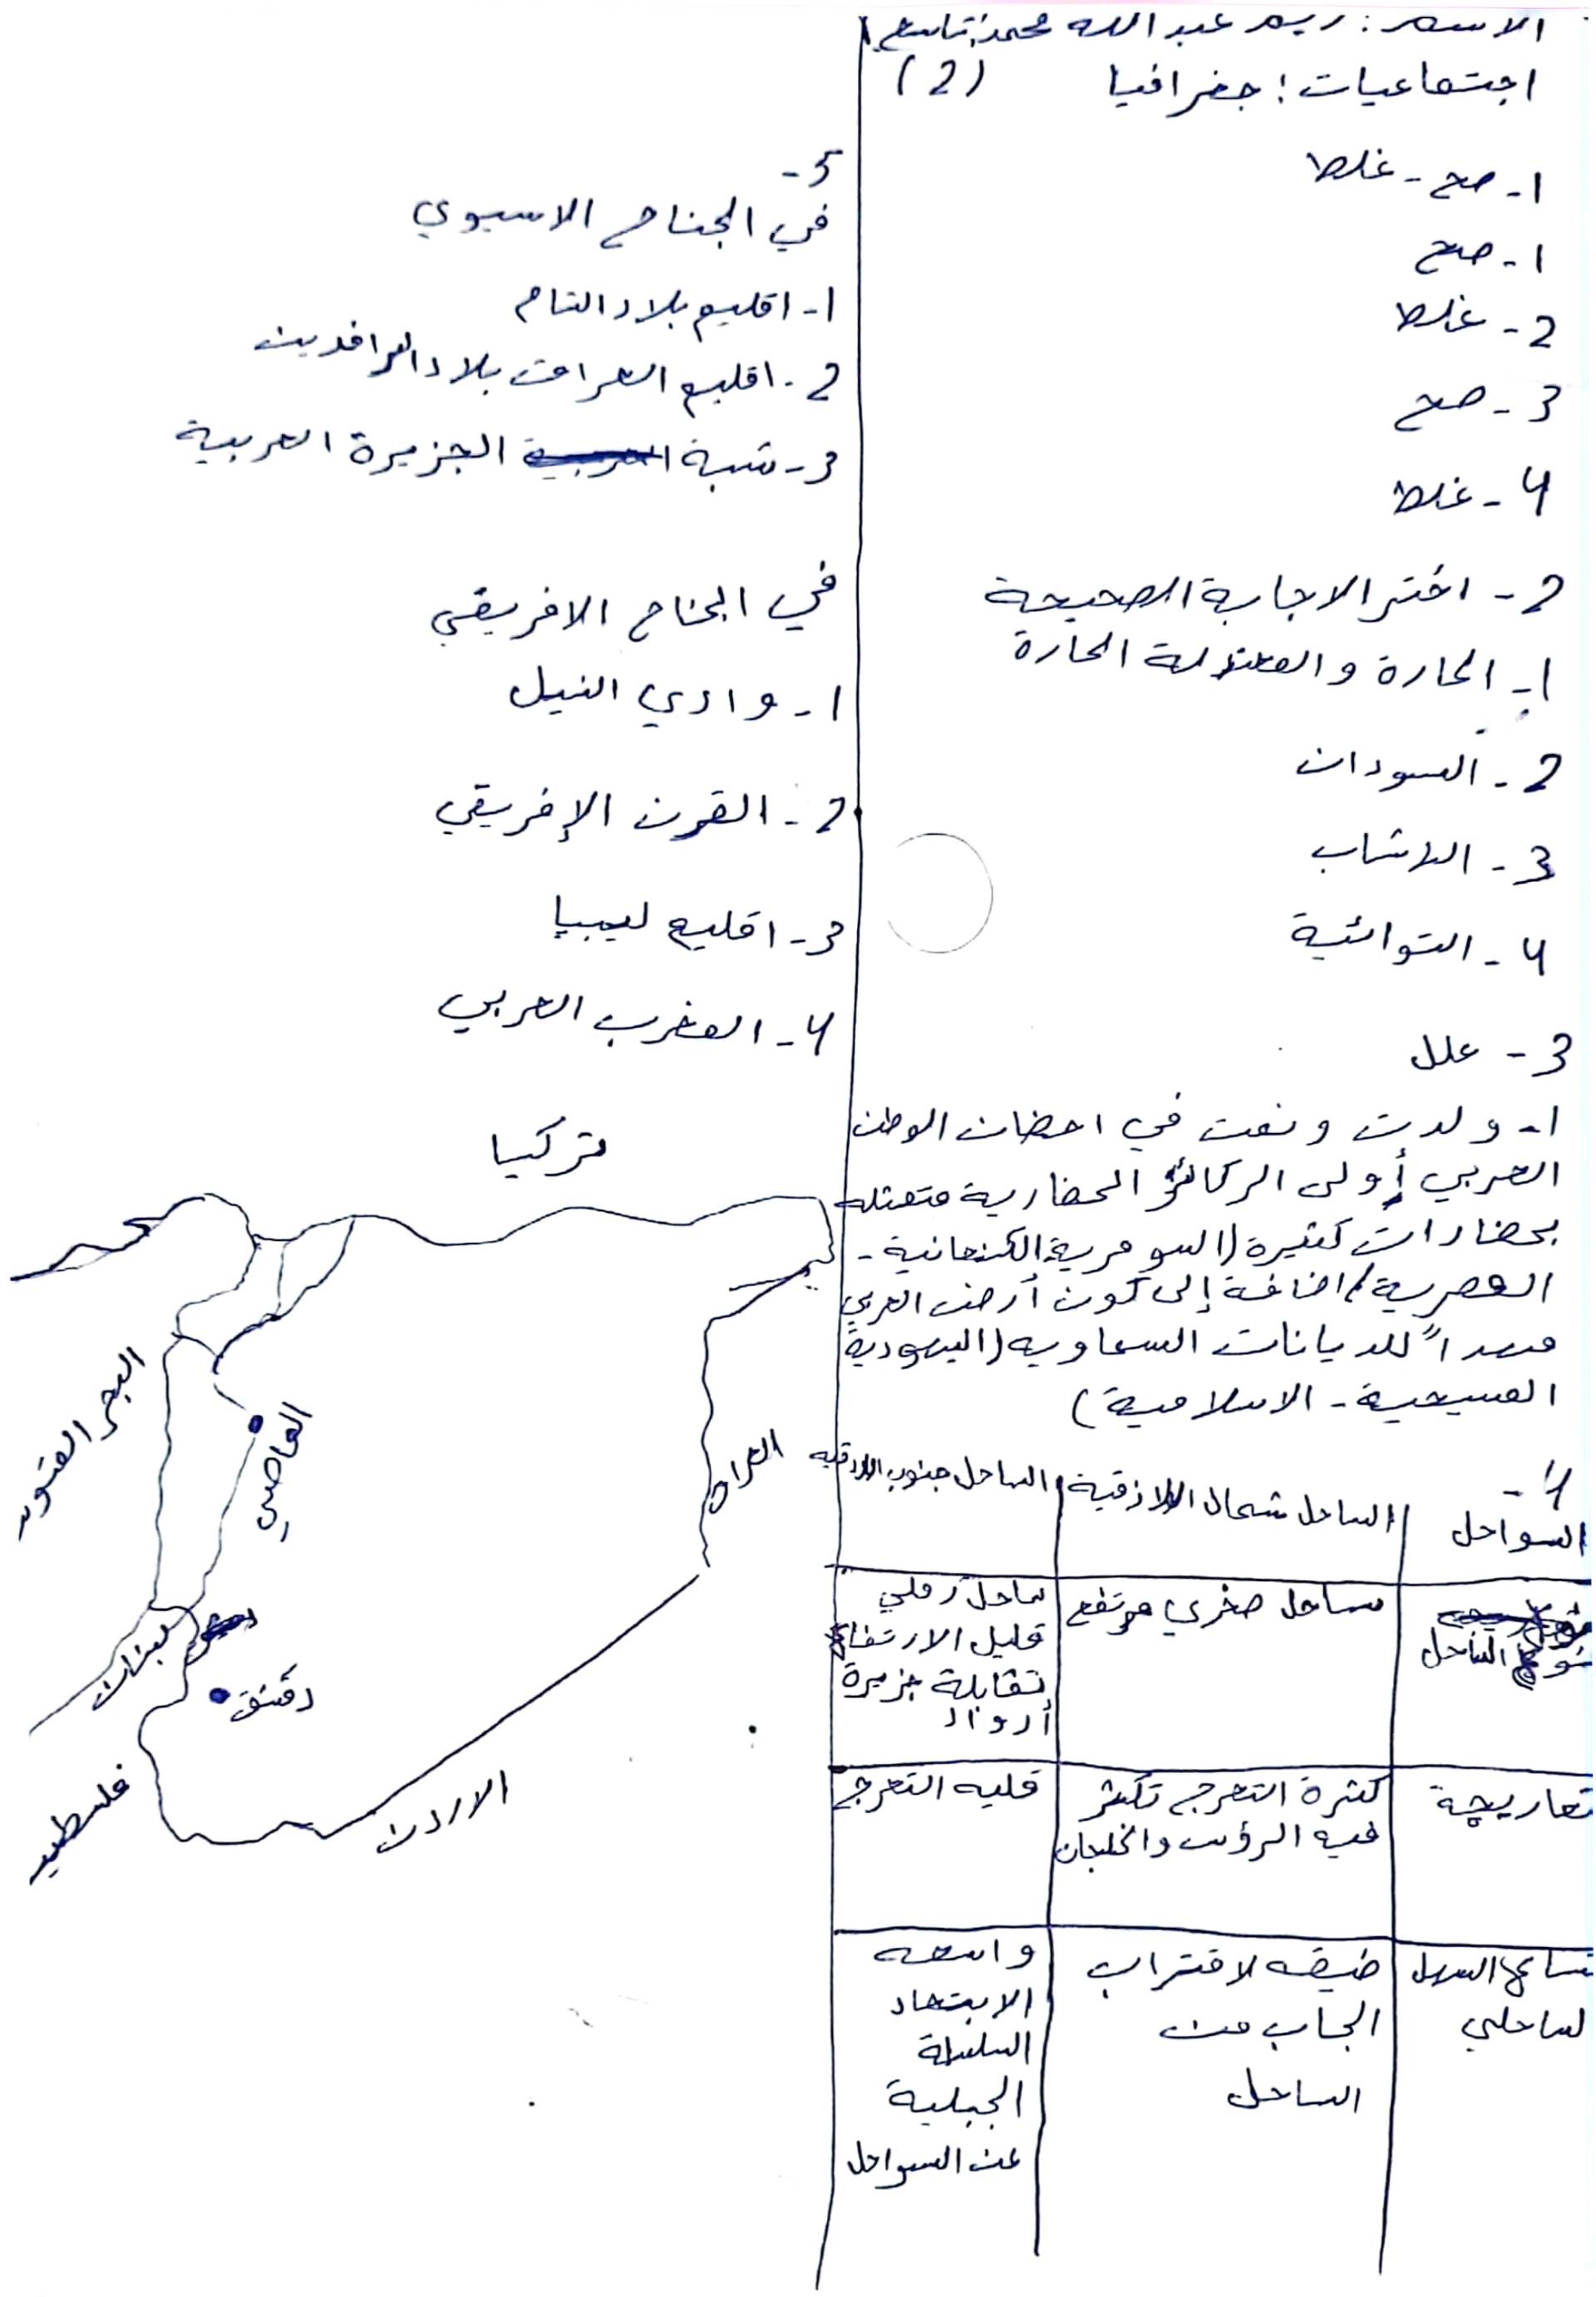 الاسم : ريم عبد الله محمد قاسم
اجتماعيات : جغرافيا (2)
1- صح - غلط
1- صح
2- غلط
3- صح
4- غلط
2- اختر الاجابة الصحيحة
1- الحارة والمعتدلة الحارة
2- السودان
3-
4-
3- علل
1- ولدت ونمت في احضان الوطن
العربي أولى الركائز الحضارية متمثله
بحضارات كثيرة (السومرية، الكنعانية -
المصرية) اضافة إلى كون أرض العربي
مهداً للديانات السماويه (اليهودية
المسيحية - الاسلامية)
4-
السواحل | الساحل شمال اللاذقية | الساحل جنوب اللاذقيه
نوع الساحل | ساحل صخري مرتفع | ساحل رملي
قليل الارتفاع
تقابلة جزيرة
أرواد
تعاريجة | كثرة التعرج تكثر
فيه الرؤس والخلجان | قليه التعرج
تساع السهل
لساحلي | ضيقه لاقتراب
الجاب من
الساحل | واسعه
الابتعاد
السلسلة
الجبلية
عن السواحل
5-
في الجناح الاسيوي
1- اقليم بلاد الشام
2- اقليم العراق بلاد الرافدين
3- شبة الجزيرة العربية
في الجناح الافريقي
1- وادي النيل
2- القرن الإفريقي
3- اقليم ليبيا
4- المغرب العربي
تركيا
البحر المتوسد
العاصي
العراق
لبنان
دمشق
فلسطين
الاردن